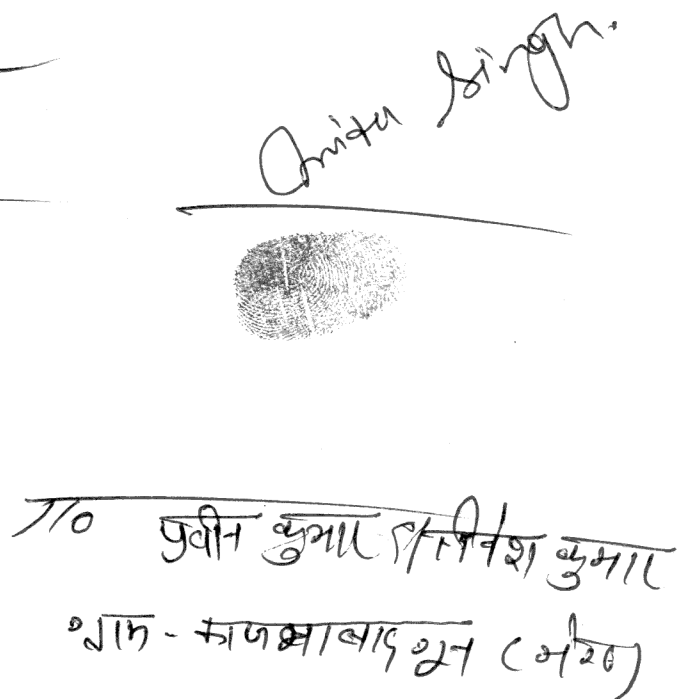 Anita Singh.
T/o प्रवीन कुमार S/o कुमार
ग्राम - काजमाबाद गून (मेरठ)